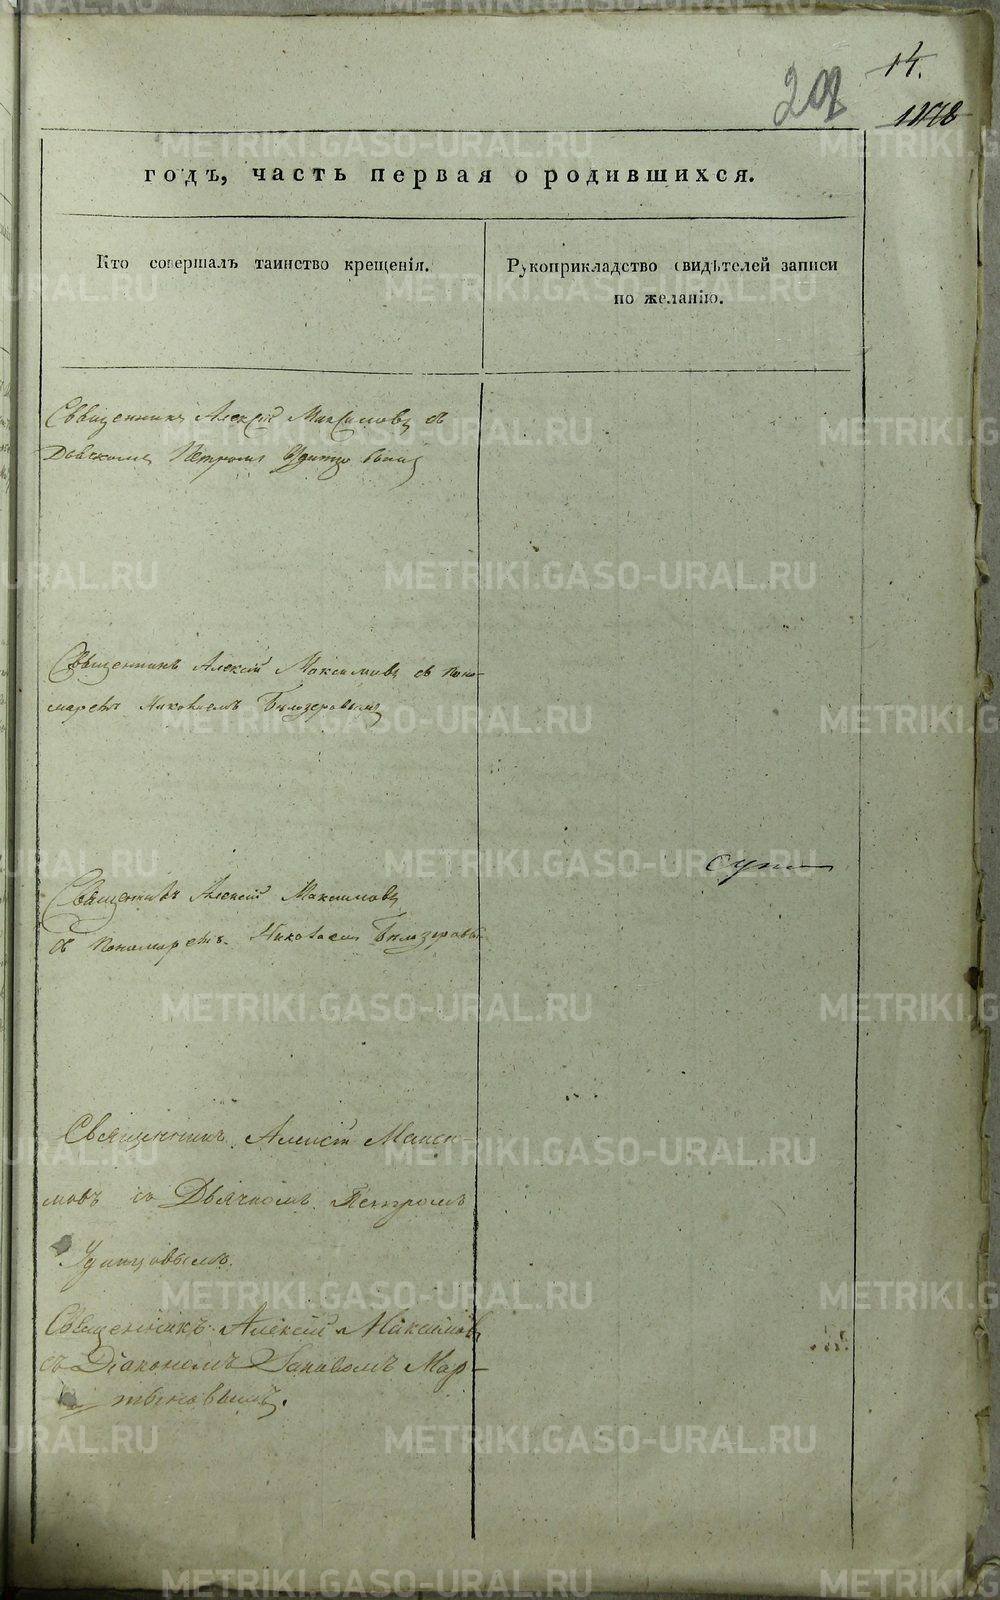 14.
202
годъ, часть первая о родившихся.
Кто совершалъ таинство крещенія.
Рукоприкладство свидѣтелей записи
по желанію.
Священникъ Алексій Максимовъ съ
Дьячкомъ Петромъ Удинцовымъ
Священникъ Алексій Максимовъ съ поно-
маремъ Николаемъ Бѣлозеровымъ
Священникъ Алексій Максимовъ
съ Пономаремъ Николаемъ Бѣлозеровым
Священникъ Алексій Макси-
мовъ со Дьячкомъ Петромъ
Удинцовымъ.
Священникъ Алексій Максимовъ
съ Діакономъ Мар-
тыновымъ.
METRIKI.GASO-URAL.RU